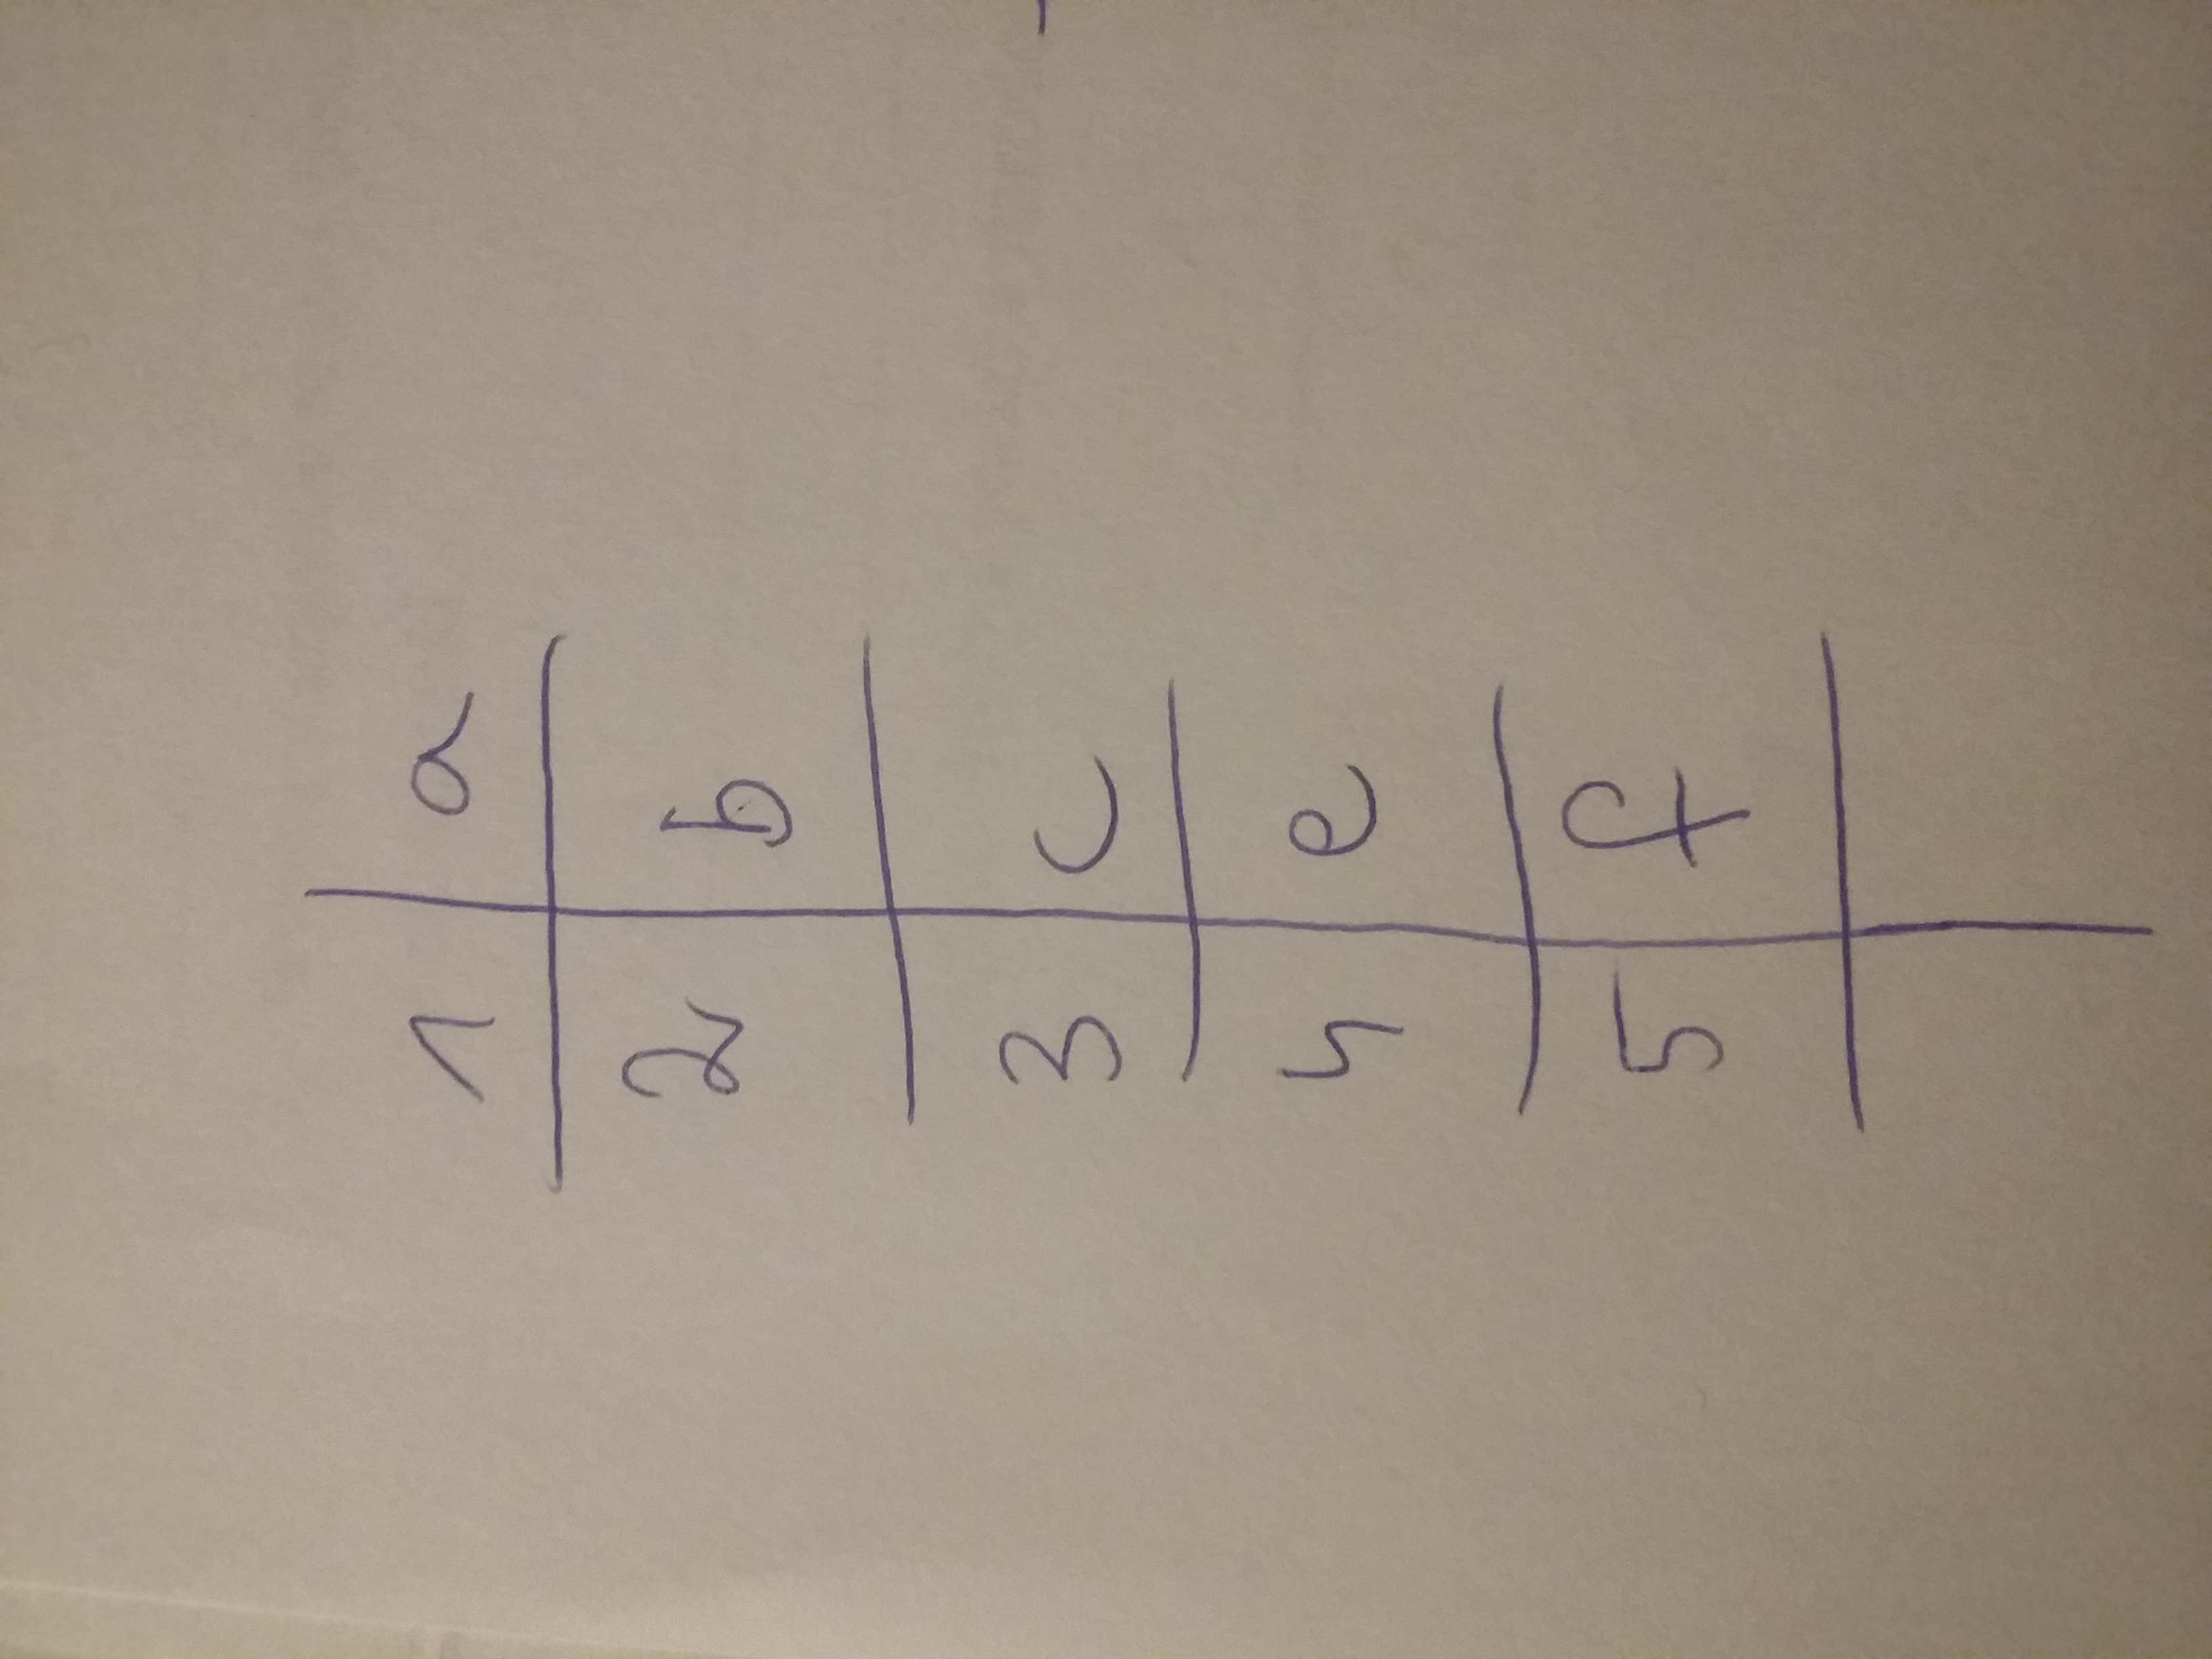 1 a
2 b
3 c
4 e
5 f